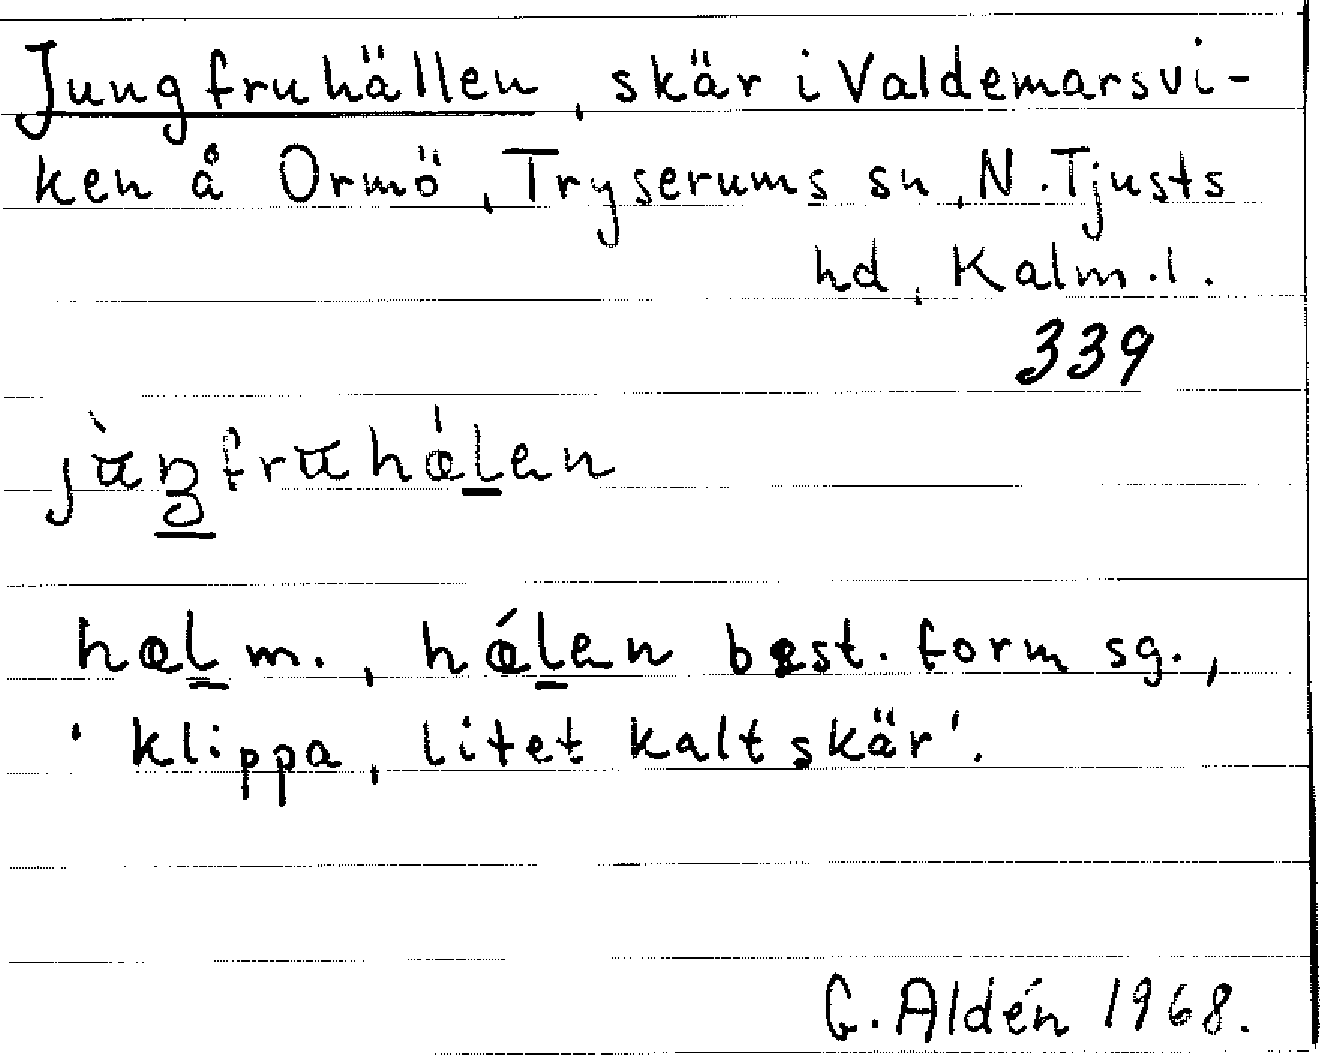 Jungfruhällen, skär i Valdemarsvi-
ken å Ormö, Tryserums sn, N. Tjusts
hd, Kalm. l.
339
hæl m., hǽlen best. form sg.,
' klippa, litet kalt skär'.
G. Aldén 1968.